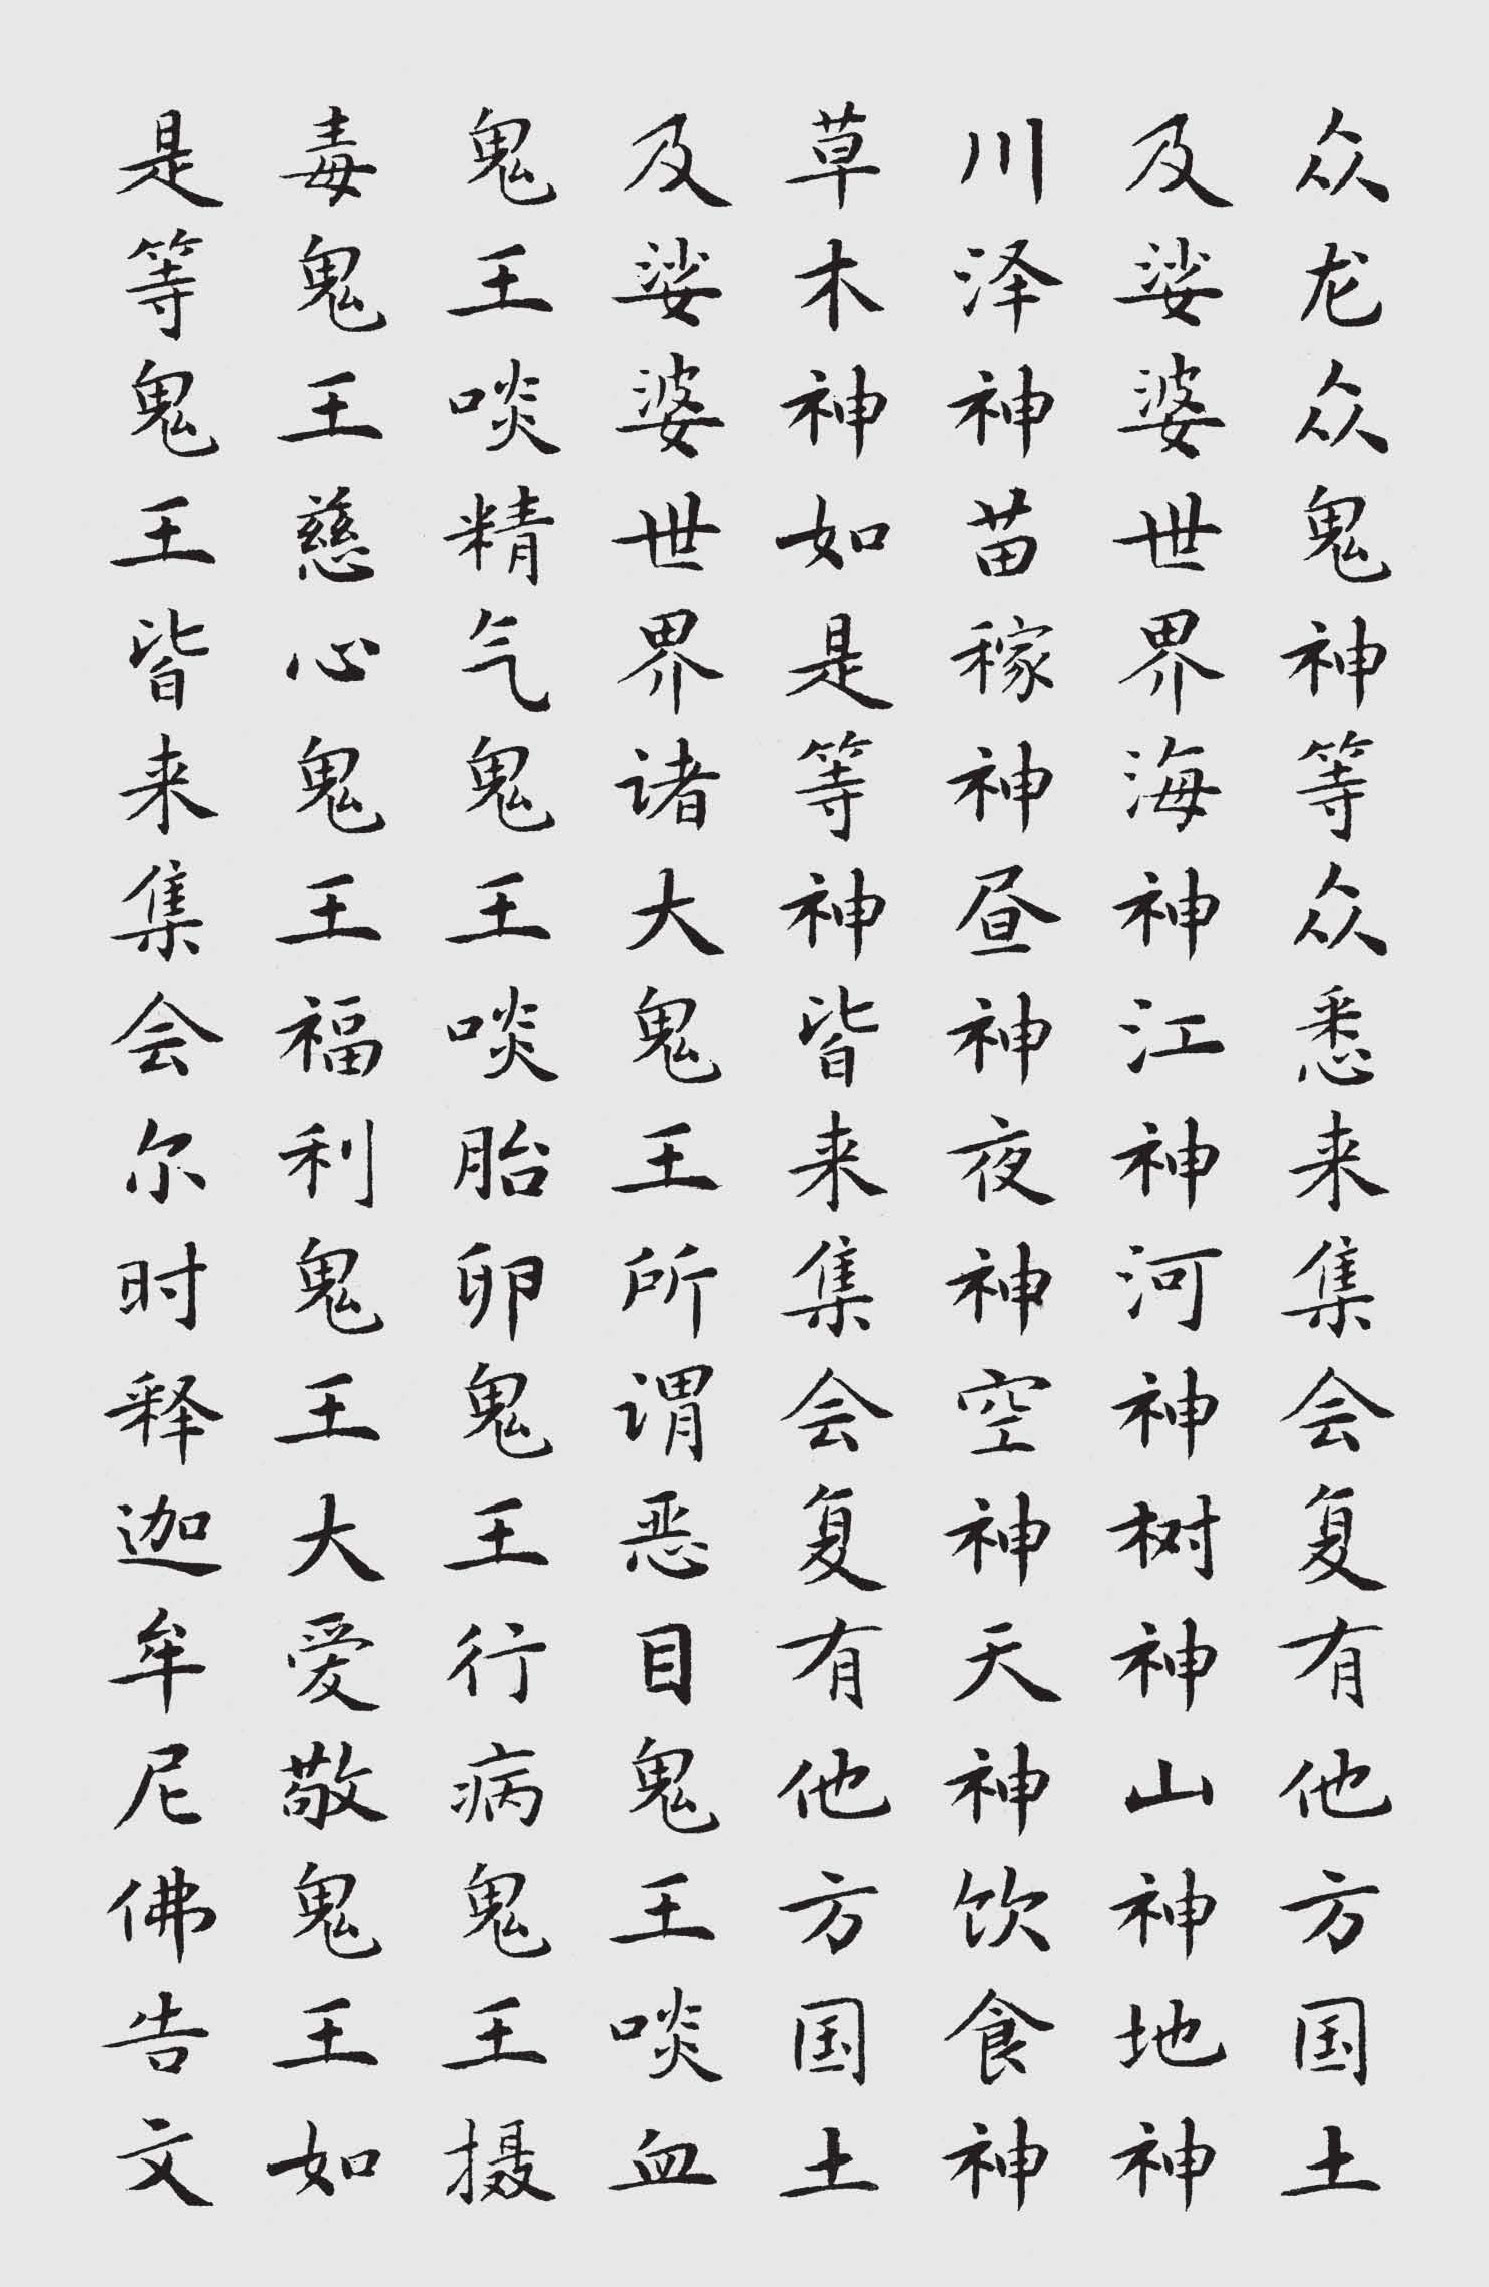 众龙众鬼神等众悉来集会复有他方国土
及娑婆世界海神江神河神树神山神地神
川泽神苗稼神昼神夜神空神天神饮食神
草木神如是等神皆来集会复有他方国土
及娑婆世界诸大鬼王所谓恶目鬼王啖血
鬼王啖精气鬼王啖胎卵鬼王行病鬼王摄
毒鬼王慈心鬼王福利鬼王大爱敬鬼王如
是等鬼王皆来集会尔时释迦牟尼佛告文